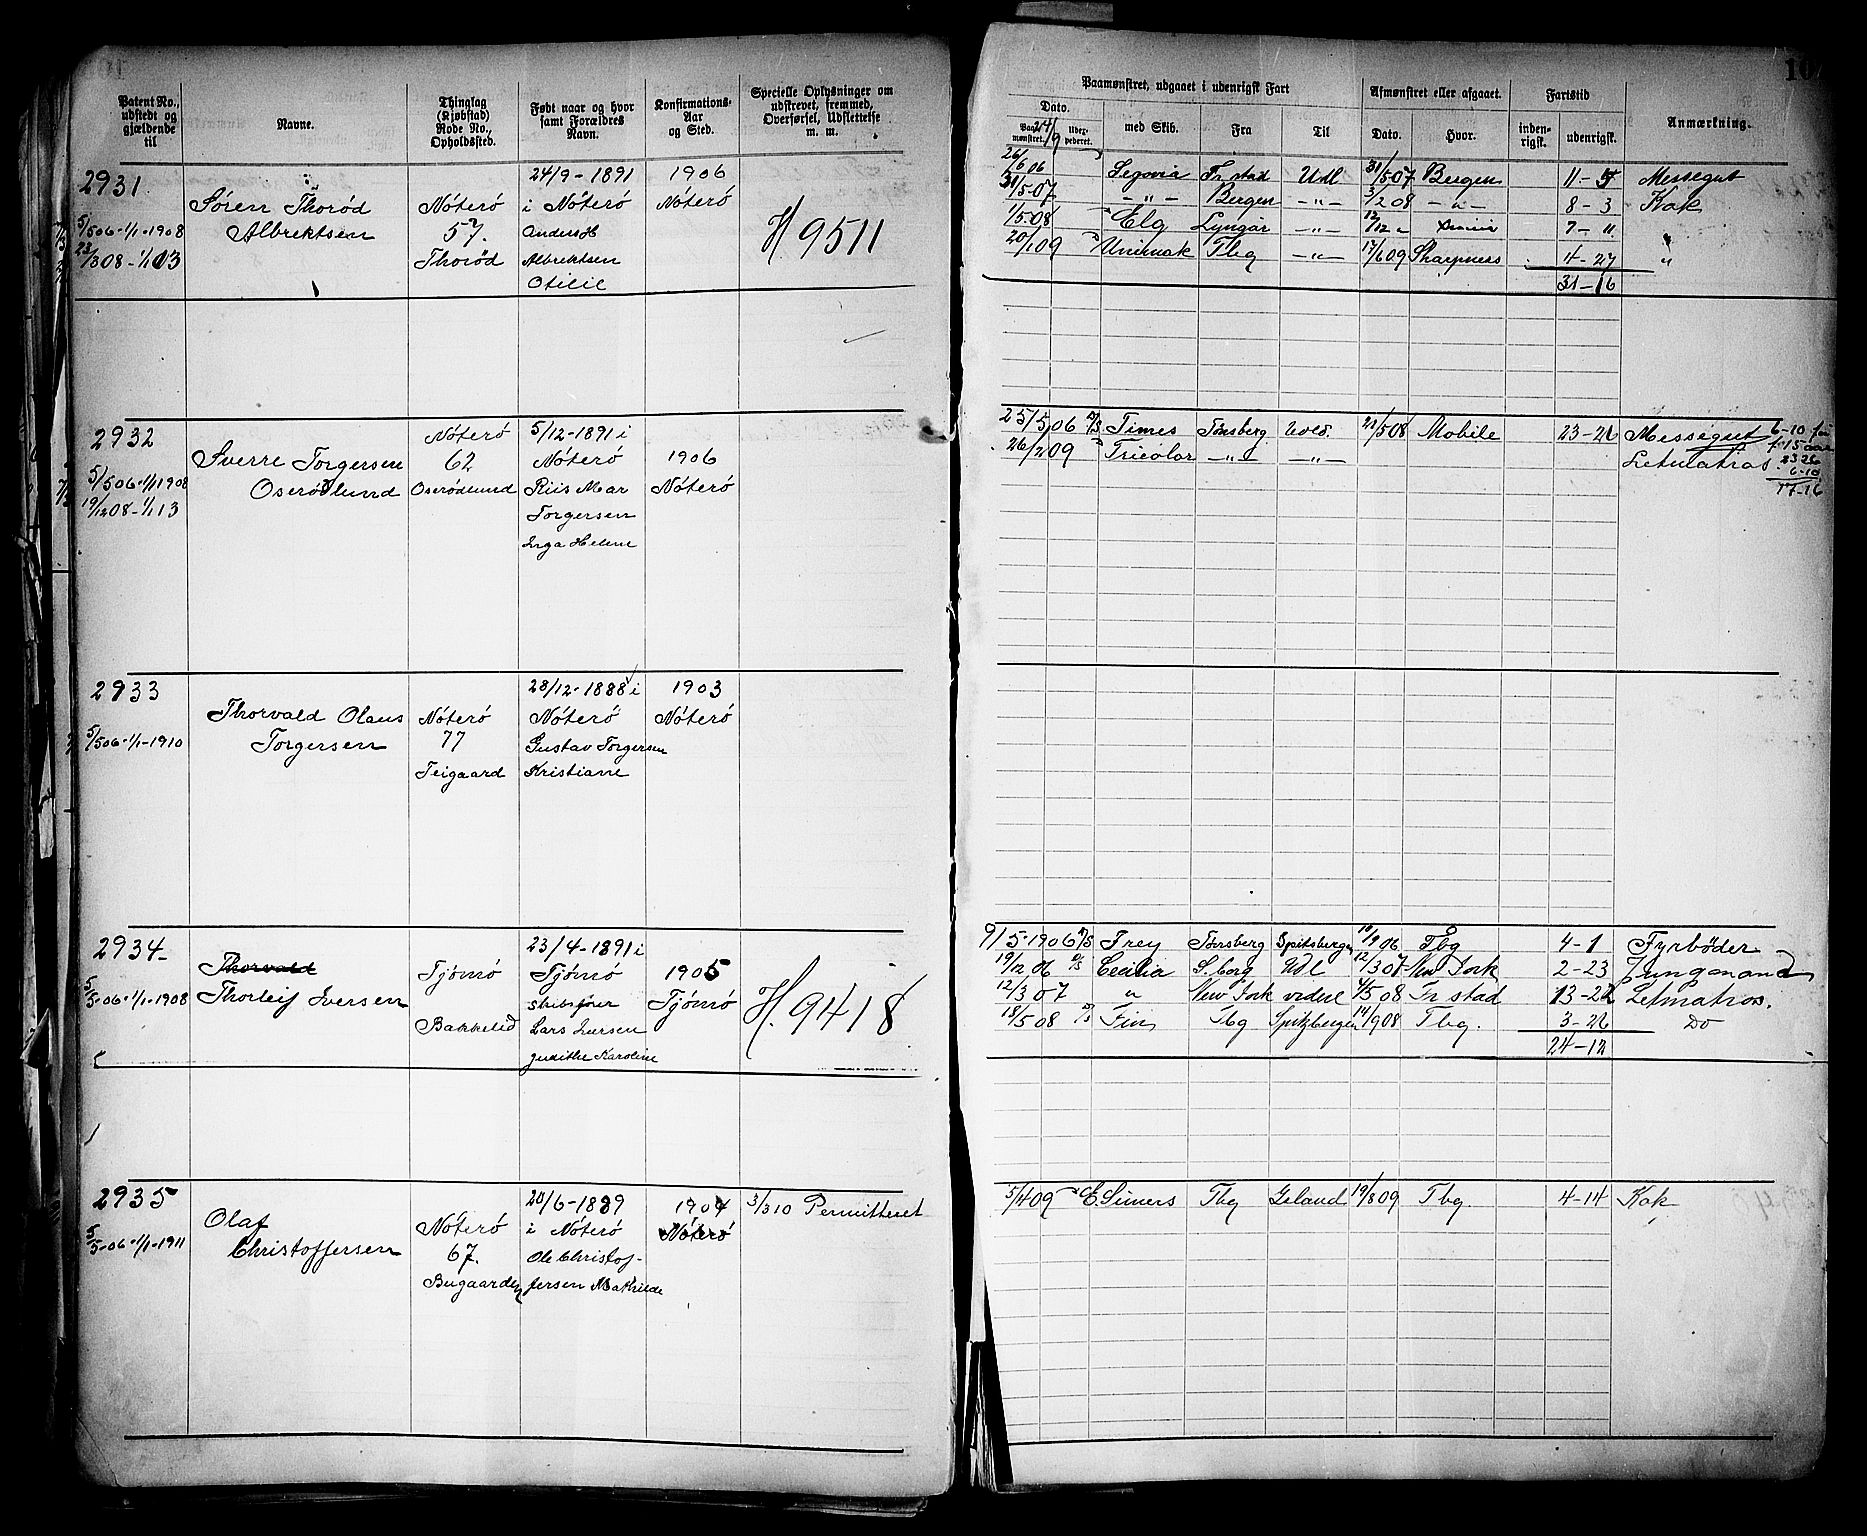 Patent No., udstedt og gjældende til
Navne.
Thinglag (Kjøbstad) Rode No., Opholdssted.
Født naar og hvor samt Forældres Navn.
Konfirmations-Aar og Sted.
Specielle Oplysninger om udskrevet, fremmed, Overførsel, Udslettelse m. m.
Paamønstret, udgaaet i udenrigsk Fart
Afmønstret eller afgaaet.
Fartstid
Anmærkning.
Dato.
Paamønstret.
med Skib.
Fra
Til
Dato.
Hvor.
indenrigsk.
udenrigsk.
2931
5/5 06 - 1/1 - 1908
23/3 08 - 1/1 13
Søren Thorød
Albrektsen
Nøterø
57.
Thorød
24/9 - 1891
i Nøterø
Anders H
Albrektsen
Otilie
1906
Nøterø
H 9511
26/6 06 Segovia Fr stad Udl 31/5 07 Bergen 11-5 Messegut
31/5 07 -"- Bergen -"- 3/2 08 -"- 8-3 Kok
1/5 08 Elg Lyngør -"- 12/12 " 7-" "
20/1 09 Unimak Tbg -"- 17/6 09 Sharpness 4-27 "
31-16
2932
5/5 06 - 1/1 1908
19/12 08 - 1/1 13
Sverre Torgersen
Oserødlund
Nøterø
62
Oserødlund
5/12 - 1891 i
Nøterø
Riis Mar
Torgersen
Inga Helene
1906
Nøterø
25/5 06 Times Tønsberg Udl. 21/5 08 Mobile 23-26 Messegut 6-10
26/2 09 Tricolor -"- -"- Letmatros 23 26
6-10
17-16
2933
5/5 06 - 1/1 - 1910
Thorvald Olaus
Torgersen
Nøterø
77
Teigaard
28/12 - 1888 i
Nøterø
Gustav Torgersen
Kristiane
1903
Nøterø
2934
5/5 - 06 - 1/1 - 1908
Thorvald
Thorleif Iversen
Tjømø
Bakkelid
23/4 - 1891 i
Tjømø
Lars Iversen
Judithe Karoline
1905
Tjømø
H. 9418
9/5 - 1906 Frey Tønsberg Spitsbergen 10/9 06 Tbg 4-1 Fyrbøder
19/12 06 Cecilia S. borg Udl 12/3 07 New York 2-23 Jungmand
12/3 07 " New York videre 4/5 08 Fr stad 13-22 Letmatros.
18/5 08 Fin Tbg Spitzbergen 14/9 08 Tbg. 3-26 Do
24-12
2935
5/5 - 06 - 1/1 - 1911
Olaf
Christoffersen
Nøterø
67.
Bugaarden
20/6 - 1889
i Nøterø
Ole Christof-
fersen Mathilde
1904
Nøterø
3/3 10 Permitteret
5/4 09 E. Simers Tbg Island 19/8 09 Tbg 4-14 Kok